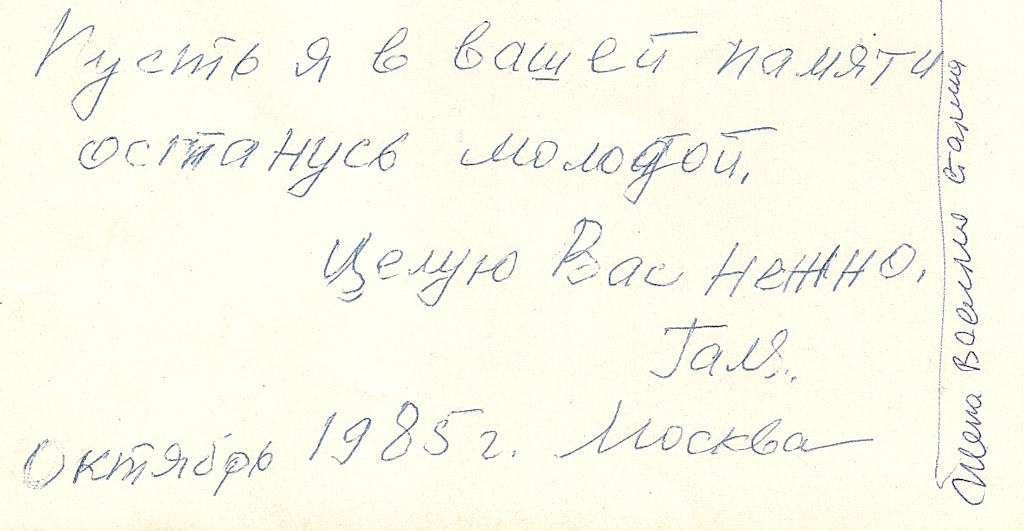 Пусть я в вашей памяти
останусь молодой.
Целую Вас нежно.
Галя.
Октябрь 1985 г. Москва
Жена Василия